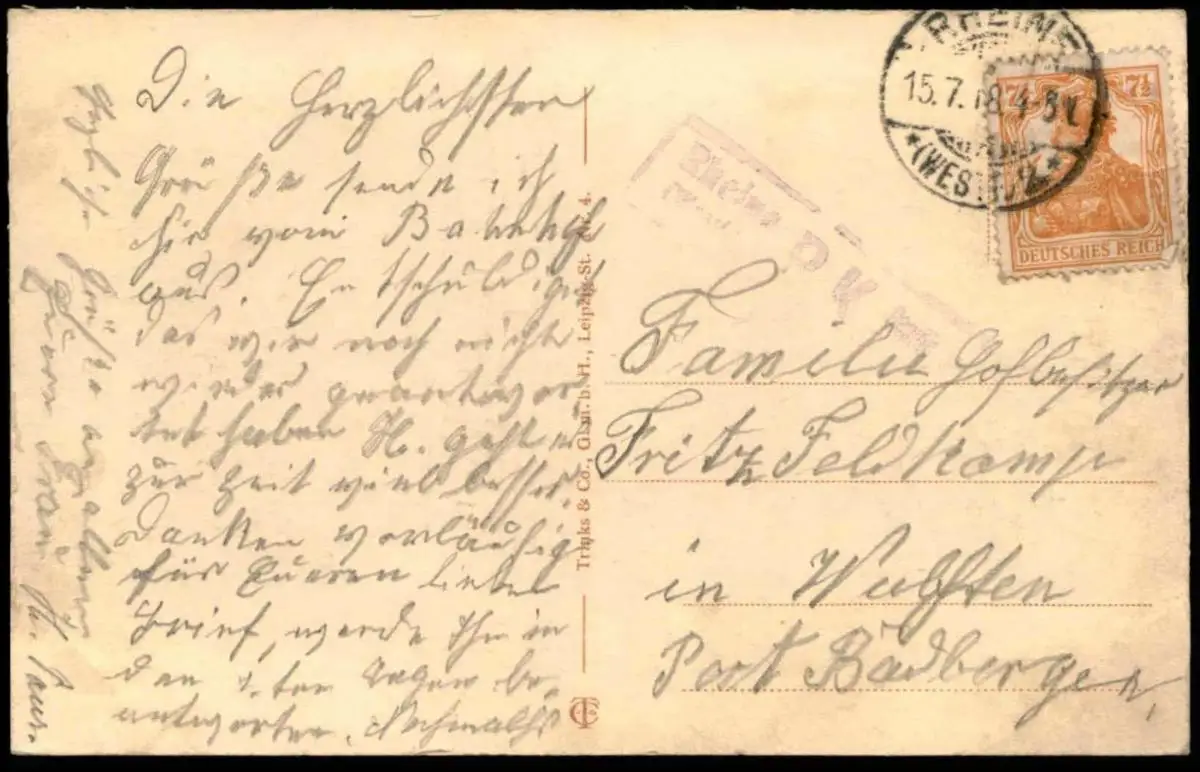 Die Herzlichsten
Grüße sende ich
hir vom Bahnhof
aus. Entschuldiget
das wir noch nicht
wieder geantwor
tet haben. H. geht es
zur Zeit viel besser.
Danken vorläufig
für Eueren lieben
Brief, werde Ihn in
den Tagen be-
antworten. Nochmalhs
Grüße an alle
RHEINE
15.7.18 4-5 N.
*(WESTF.)2*
7½ 7½
DEUTSCHES REICH
Rheine
P K
Trinks & Co., G.m.b.H., Leipzig-St. 4.
Familie Hofbesitzer
Fritz Feldkamp
in Wulften
Post Badbergen,